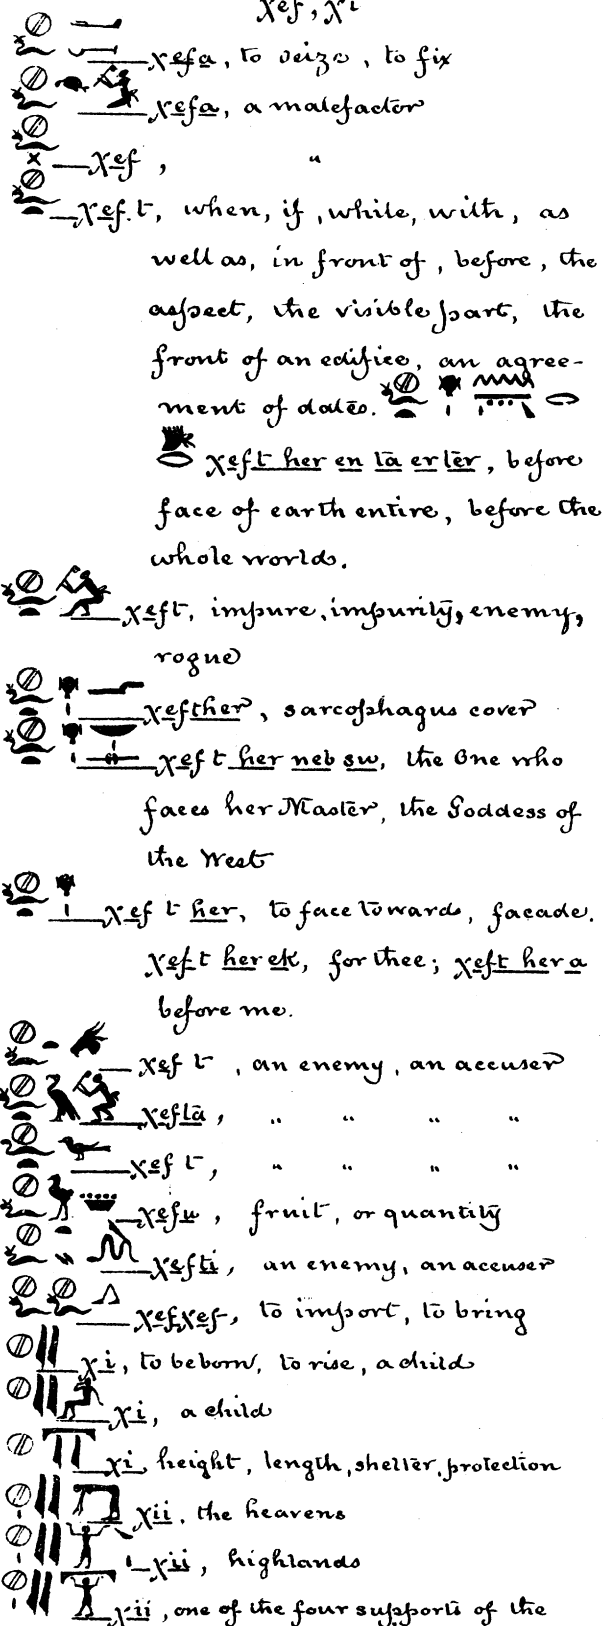 χef, χi
χefa, to seize, to fix
χefa, a malefactor
χef, "
χef.t, when, if, while, with, as
well as, in front of, before, the
aspect, the visible part, the
front of an edifice, an agree-
ment of dates.
χeft her en tā er ter, before
face of earth entire, before the
whole worlds.
χeft, impure, impurity, enemy,
rogue
χefther, sarcophagus cover
χef t her neb sw, the One who
faces her Master, the Goddess of
the West
χef t her, to face towards, facade.
χeft her ek, for thee; χeft her a
before me.
χef t, an enemy, an accuser
χeftā, " " " "
χef t, " " " "
χefu, fruit, or quantity
χefti, an enemy, an accuser
χefχef, to import, to bring
χi, to be born, to rise, a child
χi, a child
χi, height, length, shelter, protection
χii, the heavens
χii, highlands
χii, one of the four supports of the